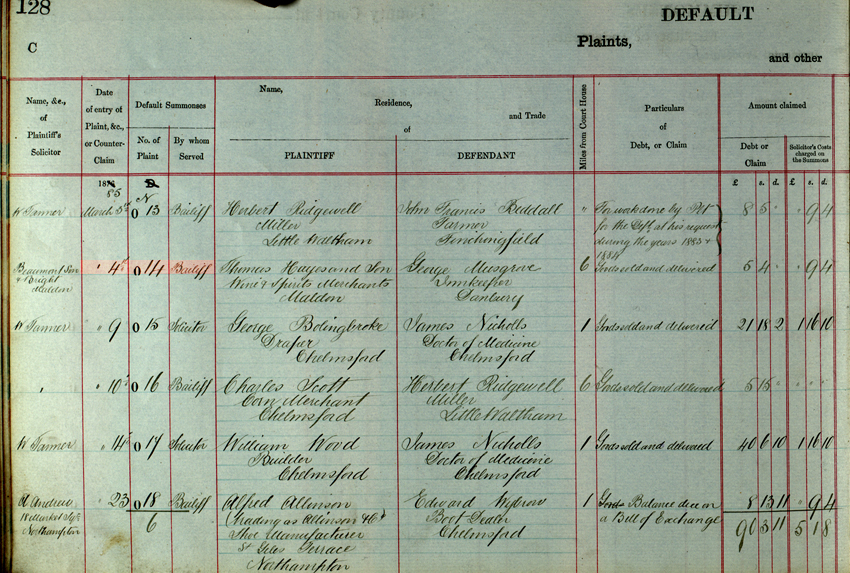 128
DEFAULT
C
Plaints,
and other
Name, &c., of Plaintiff's Solicitor
Date of entry of Plaint, &c., or Counter-Claim
Default Summonses
No. of Plaint
By whom Served
Name, Residence, and Trade of
PLAINTIFF
DEFENDANT
Miles from Court House
Particulars of Debt, or Claim
Amount claimed
Debt or Claim
Solicitor's Costs charged on the Summons
£ s. d. £ s. d.
1885
W Tanner March 5th 013 Bailiff Herbert Ridgewell John Francis Biddall " For work done by Plt 8 5 " " 9 4
Miller Farmer for the Dft, at his request
Little Waltham Finchingfield during the years 1883 +
1884
Beaumont Son " 4th 014 Bailiff Thomas Hayes and Son George Musgrove 6 Goods sold and delivered 5 4 " " 9 4
+ Bright Wine & Spirits Merchants Innkeeper
Maldon Maldon Danbury
W Tanner " 9 015 Solicitor George Bolingbroke James Nicholls 1 Goods sold and delivered 21 18 2 1 16 10
Draper Doctor of Medicine
Chelmsford Chelmsford
" " 10th 016 Bailiff Charles Scott Herbert Ridgewell 6 Goods sold and delivered 5 15 " " " "
Corn Merchant Miller
Chelmsford Little Waltham
W Tanner " 14th 017 Solicitor William Wood James Nicholls 1 Goods sold and delivered 40 6 10 1 16 10
Builder Doctor of Medicine
Chelmsford Chelmsford
Andrew " 23 018 Bailiff Alfred Allinson Edward Wybrow 1 Goods Balance due on 8 13 11 " 9 4
6 trading as Allinson & Co Boot Dealer a Bill of Exchange 90 3 11 5 1 8
Northampton Shoe Manufacturer Chelmsford
St Giles Terrace
Northampton